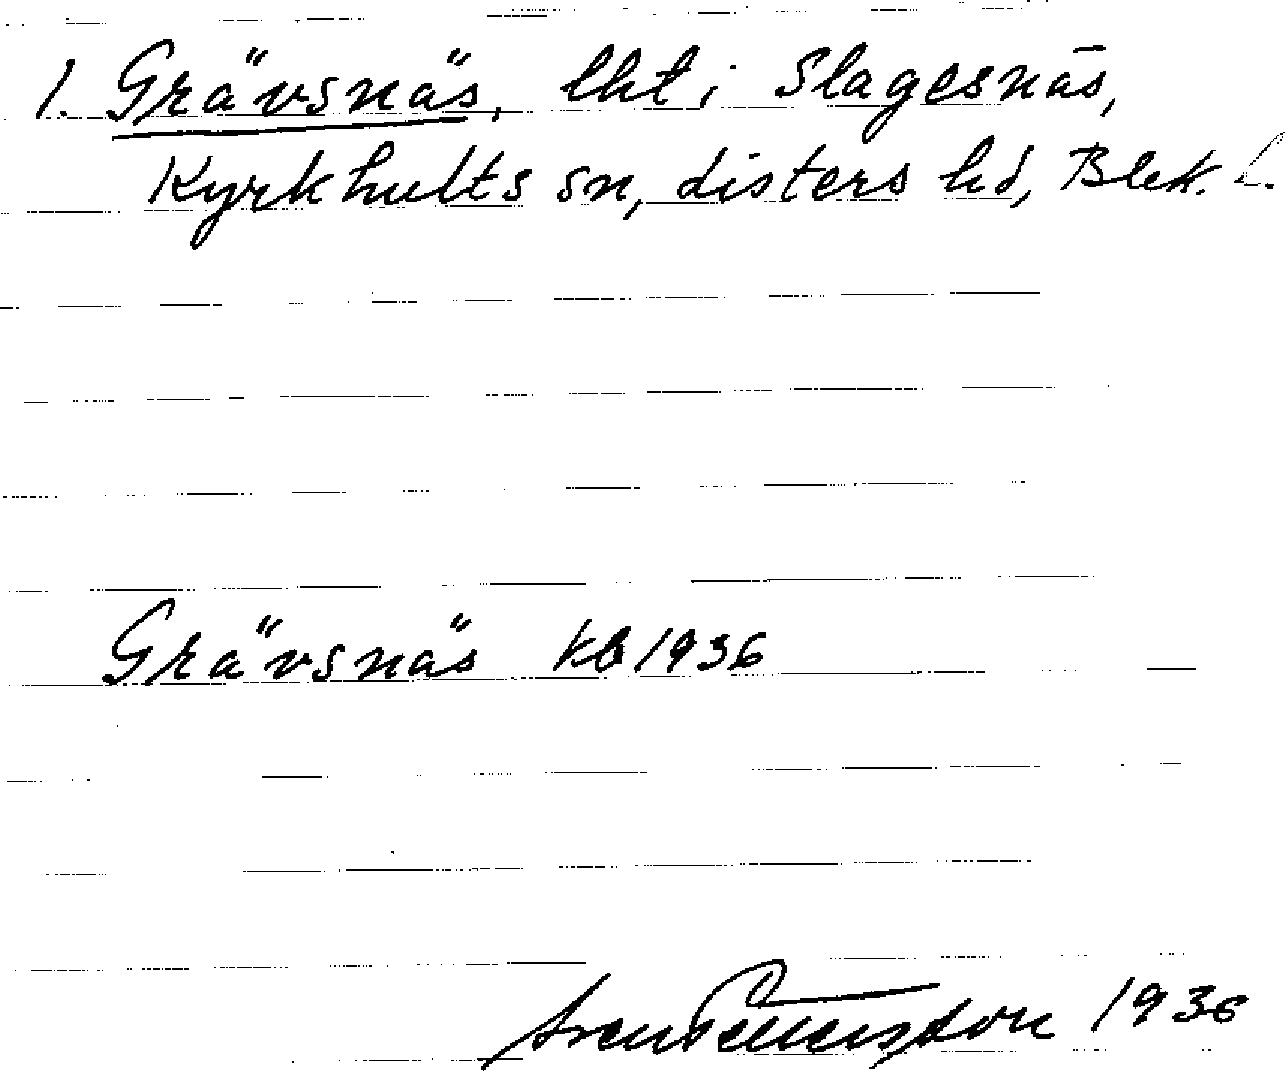 1. Grävsnäs, lht i Slagesnäs,
Kyrkhults sn, Listers hd, Blek. l.
Grävsnäs kb 1936
Sven Pettersson 1936